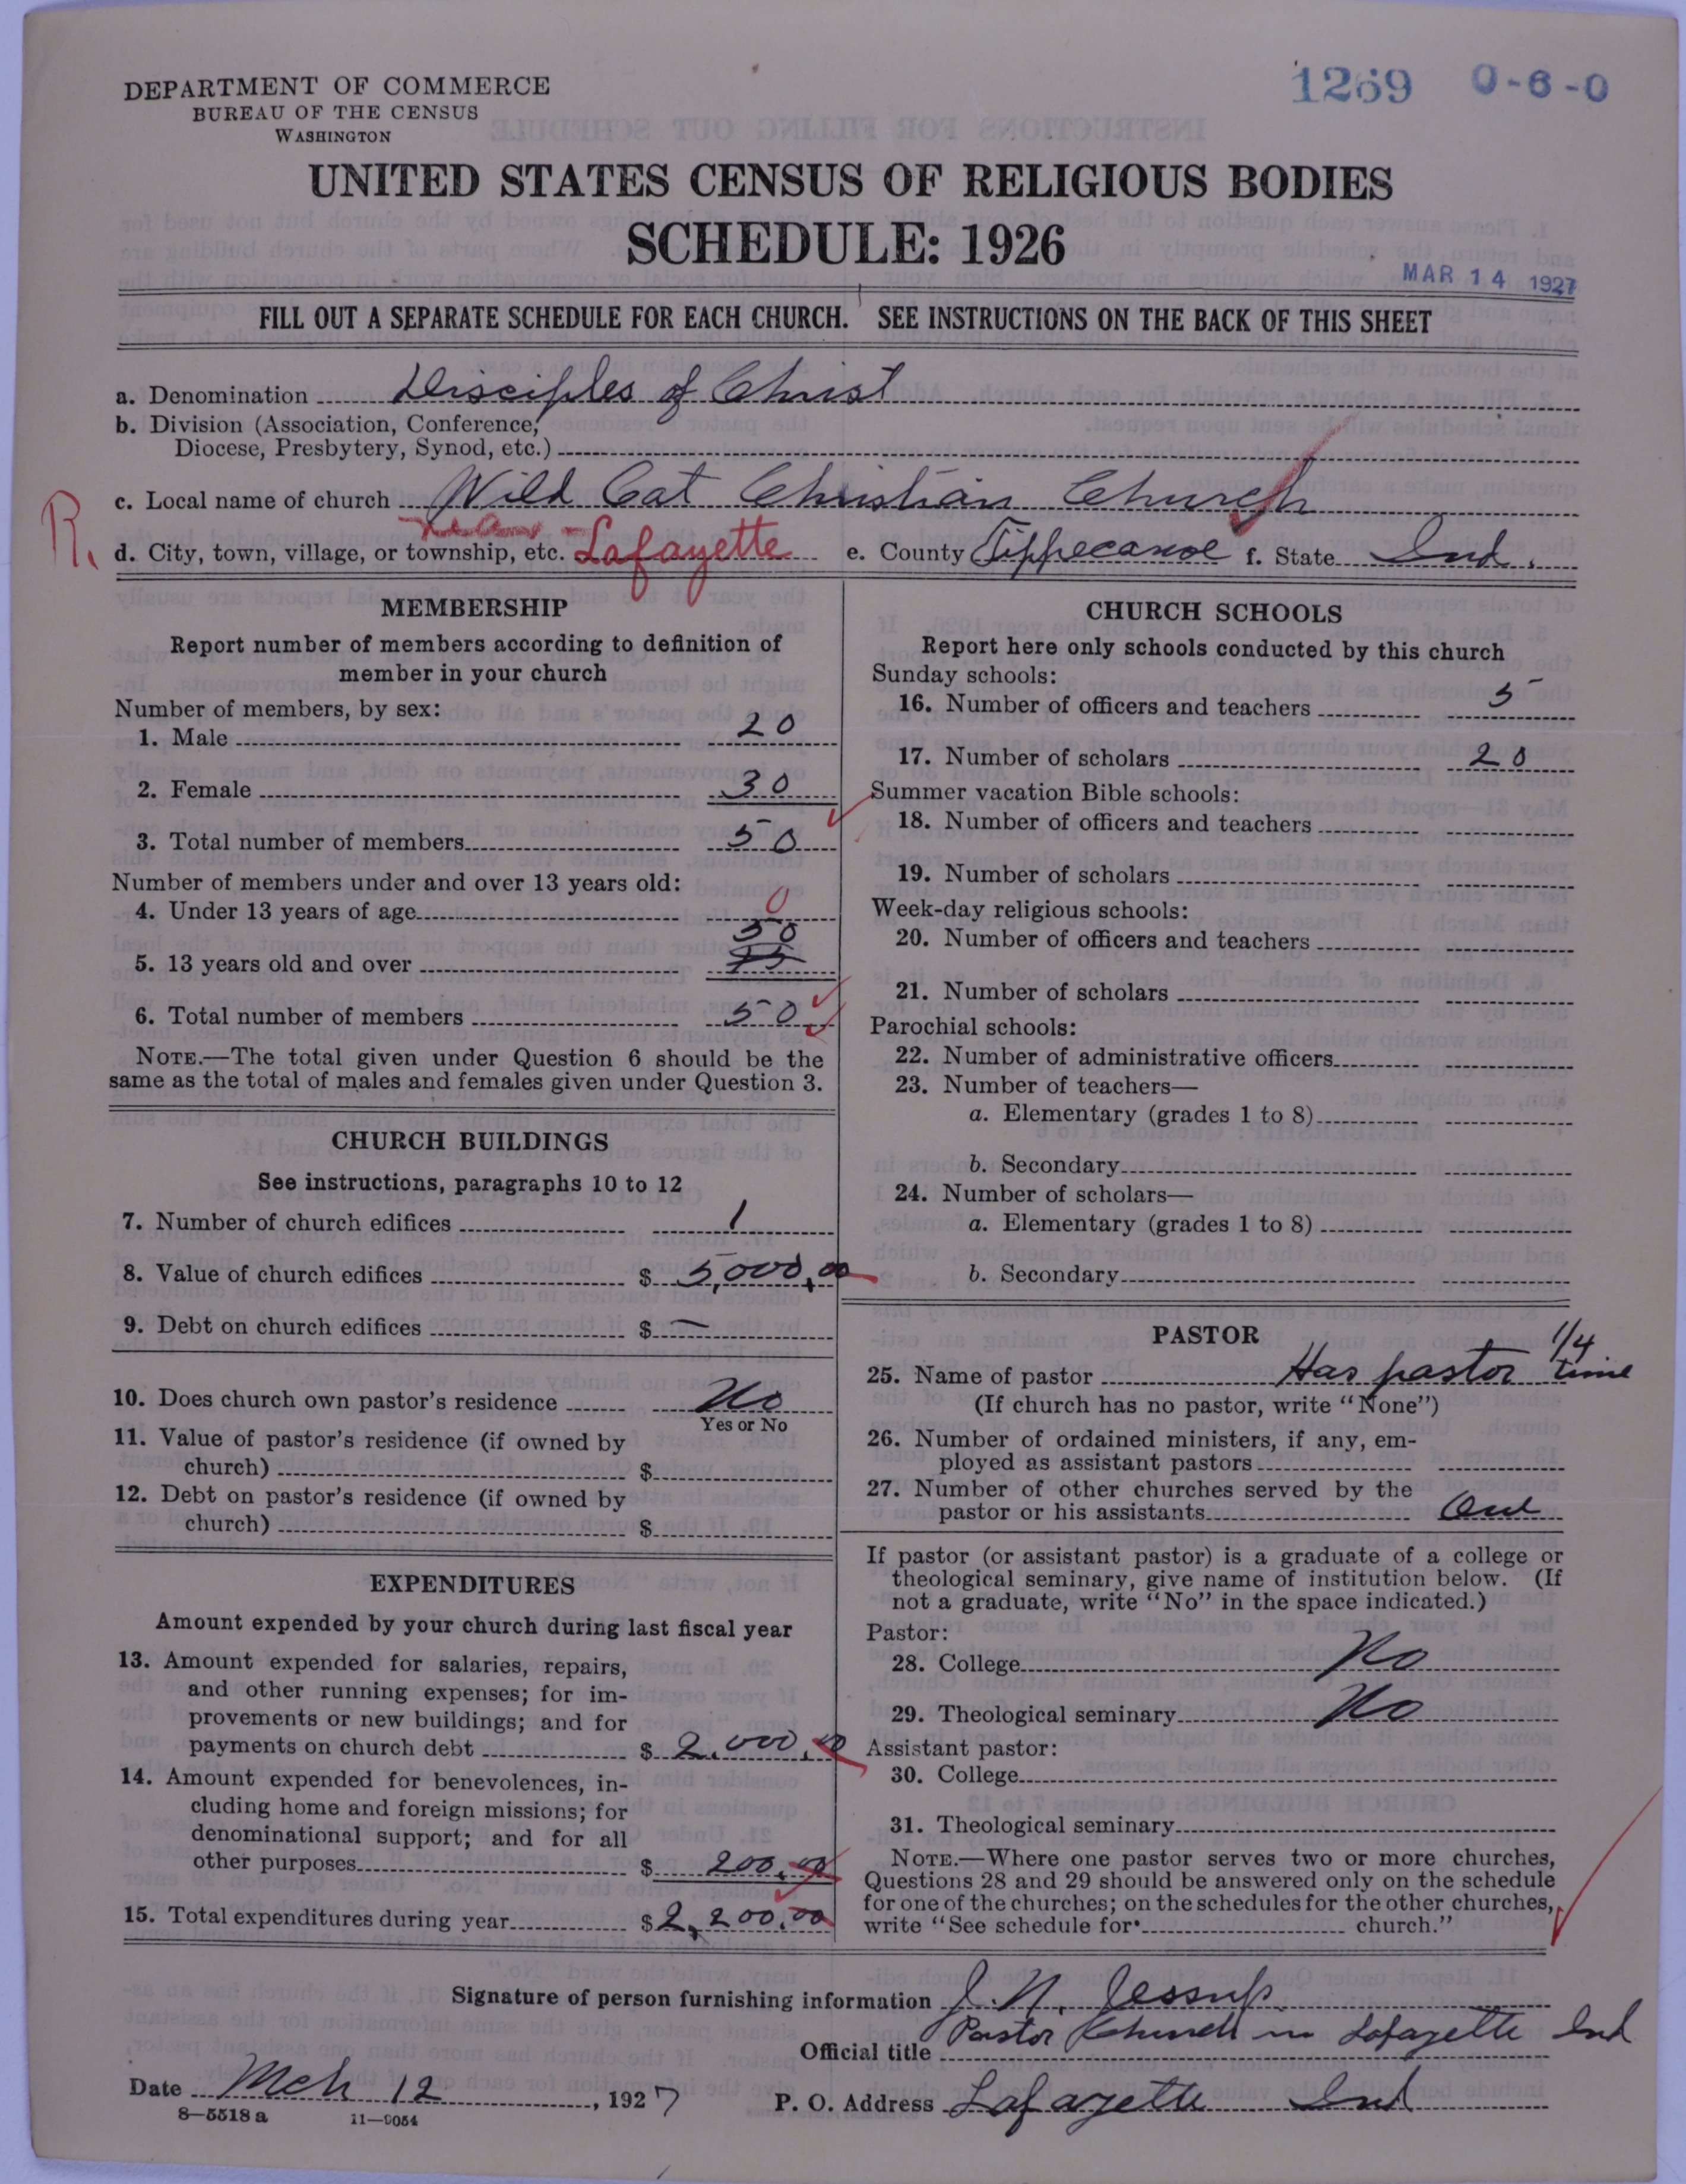 DEPARTMENT OF COMMERCE
BUREAU OF THE CENSUS
WASHINGTON
1269 0-6-0
UNITED STATES CENSUS OF RELIGIOUS BODIES
SCHEDULE: 1926
MAR 14 1927
FILL OUT A SEPARATE SCHEDULE FOR EACH CHURCH. SEE INSTRUCTIONS ON THE BACK OF THIS SHEET
a. Denomination Disciples of Christ
b. Division (Association, Conference,
Diocese, Presbytery, Synod, etc.)
c. Local name of church Wild Cat Christian Church
R. near
d. City, town, village, or township, etc. Lafayette e. County Tippecanoe f. State Ind.
MEMBERSHIP
Report number of members according to definition of
member in your church
Number of members, by sex:
1. Male 20
2. Female 30
3. Total number of members 50
Number of members under and over 13 years old:
4. Under 13 years of age 0
50
5. 13 years old and over
6. Total number of members 50
NOTE.—The total given under Question 6 should be the
same as the total of males and females given under Question 3.
CHURCH BUILDINGS
See instructions, paragraphs 10 to 12
7. Number of church edifices 1
8. Value of church edifices $ 5,000,00
9. Debt on church edifices $ —
10. Does church own pastor's residence No
Yes or No
11. Value of pastor's residence (if owned by
church) $
12. Debt on pastor's residence (if owned by
church) $
EXPENDITURES
Amount expended by your church during last fiscal year
13. Amount expended for salaries, repairs,
and other running expenses; for im-
provements or new buildings; and for
payments on church debt $ 2.000,00
14. Amount expended for benevolences, in-
cluding home and foreign missions; for
denominational support; and for all
other purposes $ 200.00
15. Total expenditures during year $ 2,200.00
CHURCH SCHOOLS
Report here only schools conducted by this church
Sunday schools:
16. Number of officers and teachers 5
17. Number of scholars 20
Summer vacation Bible schools:
18. Number of officers and teachers
19. Number of scholars
Week-day religious schools:
20. Number of officers and teachers
21. Number of scholars
Parochial schools:
22. Number of administrative officers
23. Number of teachers—
a. Elementary (grades 1 to 8)
b. Secondary
24. Number of scholars—
a. Elementary (grades 1 to 8)
b. Secondary
PASTOR
25. Name of pastor Has pastor 1/4 time
(If church has no pastor, write "None")
26. Number of ordained ministers, if any, em-
ployed as assistant pastors
27. Number of other churches served by the
pastor or his assistants One
If pastor (or assistant pastor) is a graduate of a college or
theological seminary, give name of institution below. (If
not a graduate, write "No" in the space indicated.)
Pastor:
28. College No
29. Theological seminary No
Assistant pastor:
30. College
31. Theological seminary
NOTE.—Where one pastor serves two or more churches,
Questions 28 and 29 should be answered only on the schedule
for one of the churches; on the schedules for the other churches,
write "See schedule for church."
Signature of person furnishing information J. N. Jessup.
Official title Pastor Church in Lafayette Ind
Date Mch 12, 1927 P. O. Address Lafayette Ind
8—5518a 11—9054